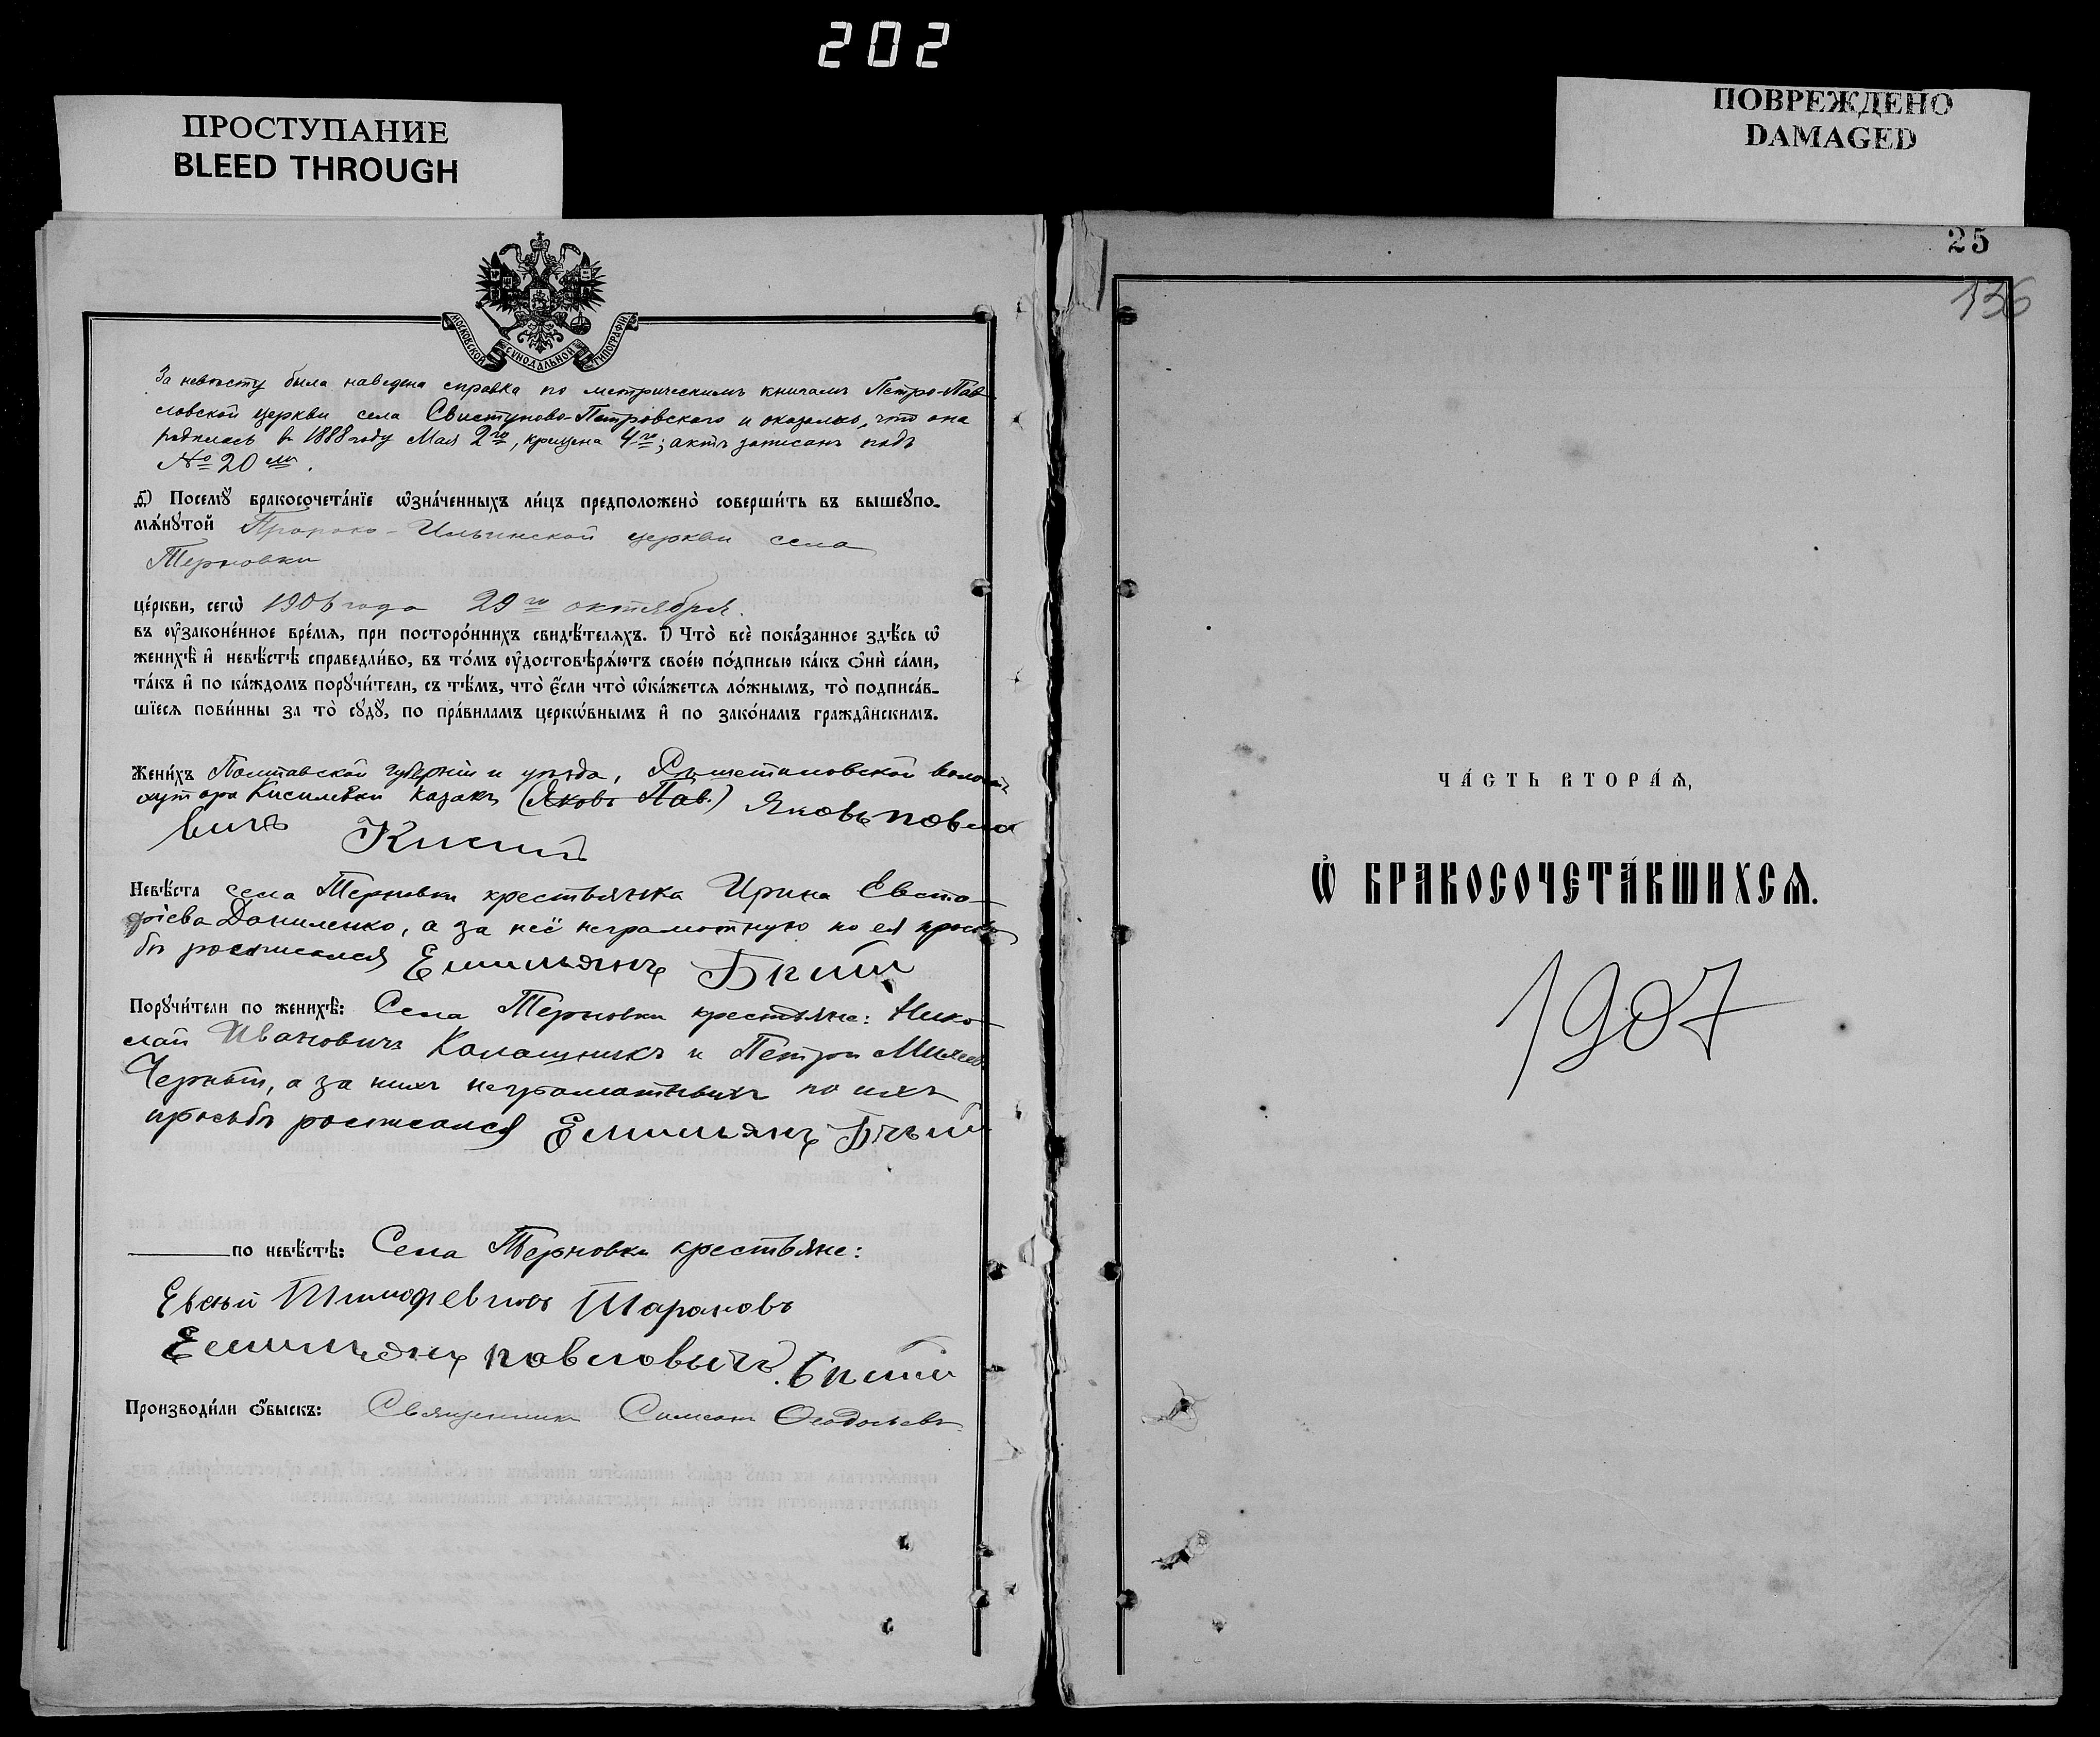 202
ПРОСТУПАНИЕ
BLEED THROUGH
ПОВРЕЖДЕНО
DAMAGED
МОСКОВСКОЙ СѴНОДАЛЬНОЙ ТИПОГРАФІИ
За невѣсту была наведена справка по метрическимъ книгамъ Петро-Пав
ловской церкви села Свистуново-Петровского и оказалось, что она
родилась въ 1888 году Мая 2го, крещена 4го; актъ записанъ подъ
№ 20 мъ.
Посемꙋ̀ бракосочета́нїе ѡ҆зна́ченныхъ ли́цъ предположено̀ соверши́ть въ вышеꙋпо-
мѧ́нꙋтой Пророко-Ильинской церкви села
Терновки
це́ркви, сегѡ̀ 1906 года 29го октября.
въ ᲂу҆законе́нное вре́мѧ, при посторо́ннихъ свидѣ́телѧхъ. І) Что̀ всѐ пока́занное здѣ́сь ѡ҆
женихѣ̀ и҆ невѣ́стѣ справедли́во, въ то́мъ ᲂу҆достовѣрѧ́ютъ свое́ю по́дписью ка́къ ѻ҆нѝ са́ми,
та́къ и҆ по ка́ждомъ порꙋчи́тели, съ тѣ́мъ, что̀ є҆́сли что̀ ѡ҆ка́жетсѧ ло́жнымъ, то̀ подписа́в-
шїесѧ пови́нны за то̀ сꙋдꙋ̀, по пра́виламъ церко́внымъ и҆ по зако́намъ гражда́нскимъ.
Жени́хъ Полтавской губерніи и уѣзда, Рѣшетиловской волости
хутора Кисилевки казакъ (Яковъ Пав.) Яковъ Повло
вичъ Кисий
Невѣ́ста села Терновки крестьянка Ирина Евста-
фіева Даниленко, а за неё неграмотную по ея прось
бѣ росписался Емильянъ Бкий
Порꙋчи́тели по женихѣ̀: Села Терновки крестьяне: Нико-
лай Ивановичъ Калашникъ и Петръ
Черный, а за нихъ неграмотныхъ по ихъ
просьбѣ росписался Емильянъ
по невѣ́стѣ: Села Терновки крестьяне:
Евсѣй Тимофіевичъ Шарановъ
Емильянъ Повловычъ
Производи́ли ѻ҆́быскъ: Священникъ Симеонъ Ѳеодосьевъ
25
136
ЧА́СТЬ ВТОРА́Ѧ,
Ѡ҆ БРАКОСОЧЕТА́ВШИХСѦ.
1907